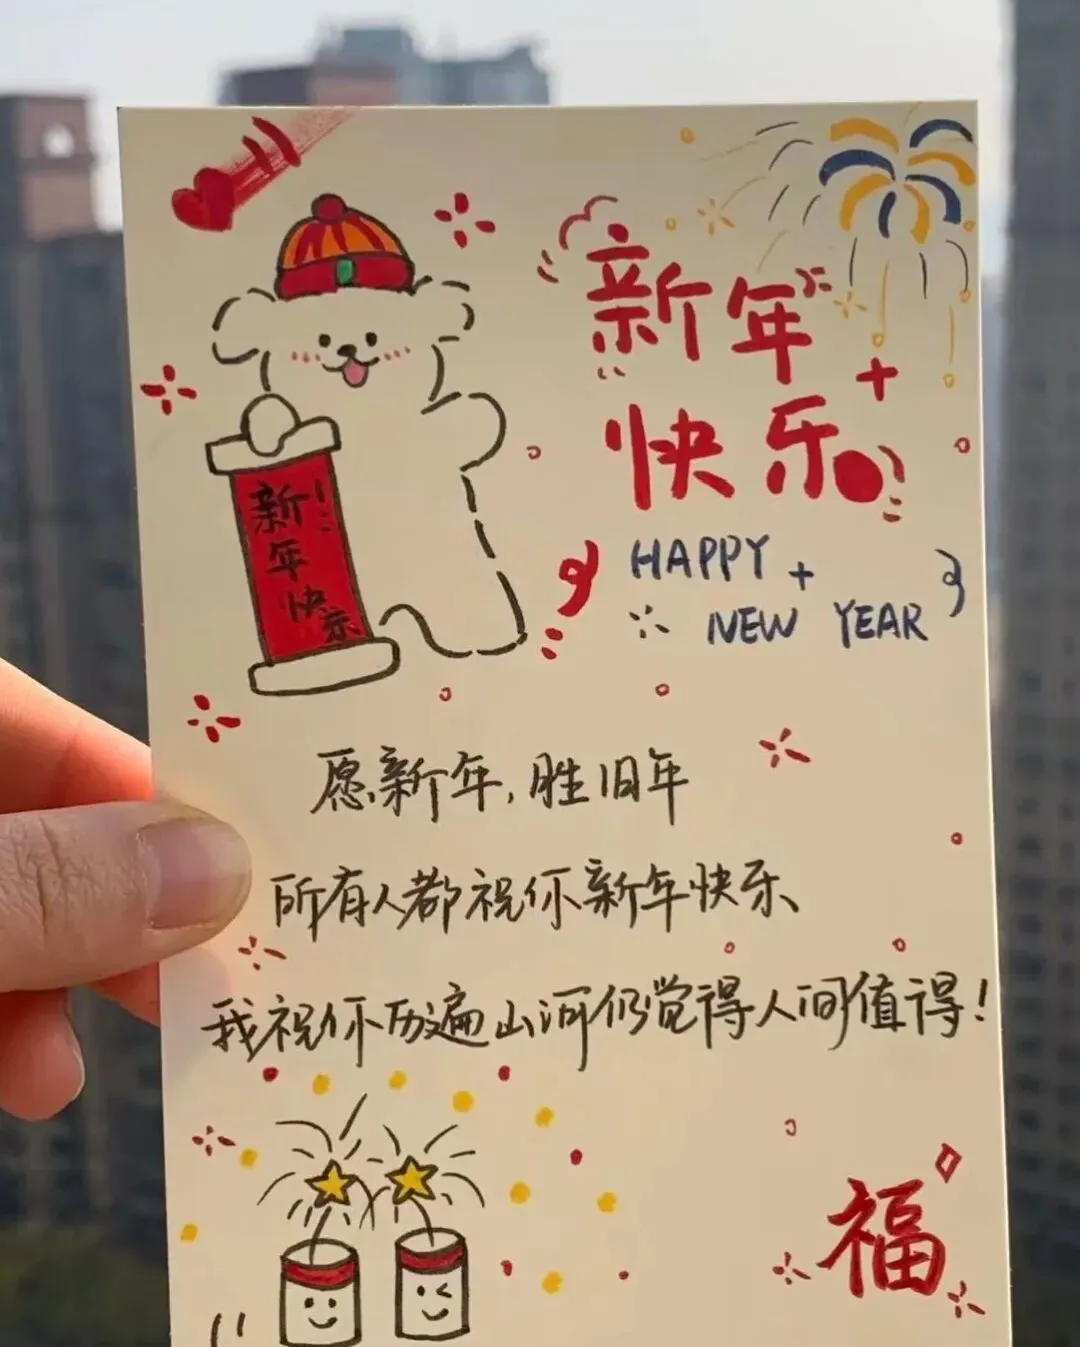 新年
快乐
HAPPY
NEW YEAR
新年快乐
愿新年,胜旧年
所有人都祝你新年快乐
我祝你历遍山河仍觉得人间值得!
福